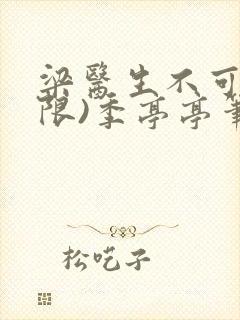 梁醫生不可
限)季亭亭
松吃子